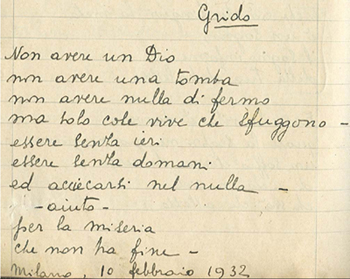 Grido
Non avere un Dio
non avere una tomba
non avere nulla di fermo
ma solo cose vive che sfuggono -
essere senza ieri
essere senza domani
ed acciecarsi nel nulla -
- aiuto -
per la miseria
che non ha fine -
Milano, 10 febbraio 1932